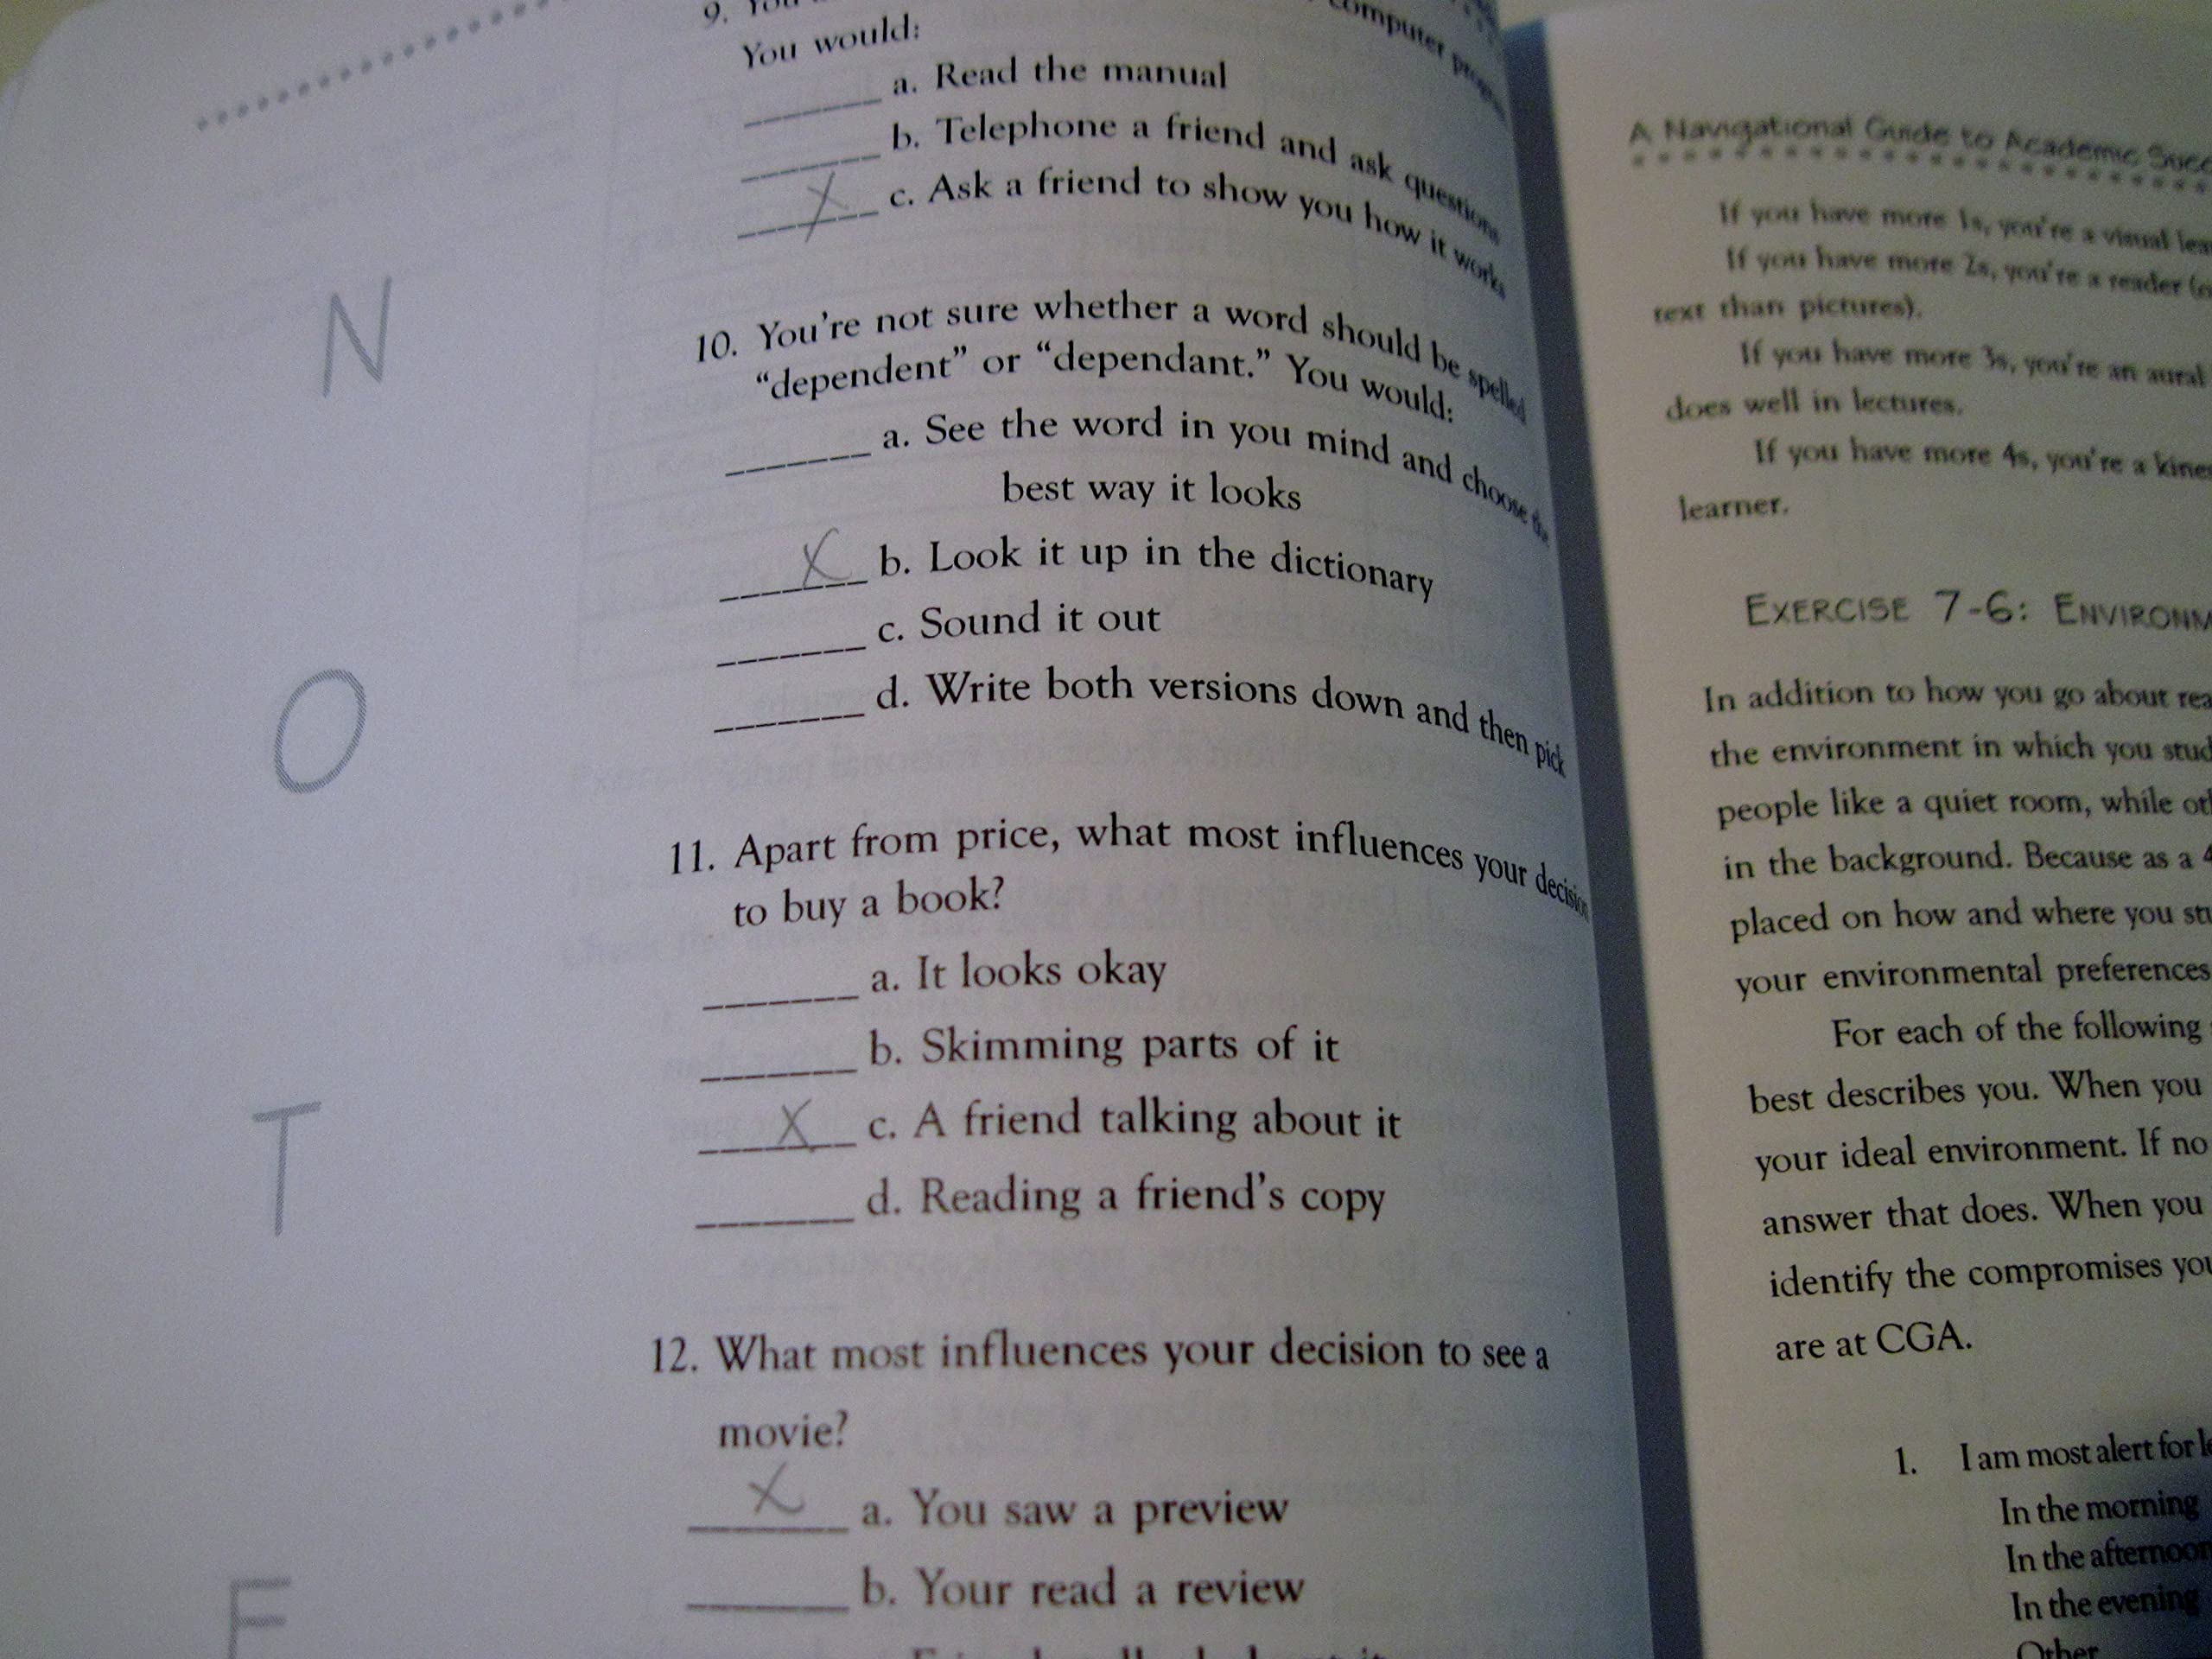 9. You
computer
You would:
a. Read the manual
b. Telephone a friend and ask questions
X c. Ask a friend to show you how it works
10. You're not sure whether a word should be spelled
"dependent" or "dependant." You would:
a. See the word in you mind and choose the
best way it looks
X b. Look it up in the dictionary
c. Sound it out
d. Write both versions down and then pick
11. Apart from price, what most influences your decision
to buy a book?
a. It looks okay
b. Skimming parts of it
X c. A friend talking about it
d. Reading a friend's copy
12. What most influences your decision to see a
movie?
X a. You saw a preview
b. Your read a review
N
O
T
E
A Navigational Guide to Academic Succ
If you have more 1s, you're a visual lea
If you have more 2s, you're a reader
text than pictures).
If you have more 3s, you're an aural
does well in lectures.
If you have more 4s, you're a kines
learner.
EXERCISE 7-6: ENVIRONM
In addition to how you go about rea
the environment in which you stud
people like a quiet room, while oth
in the background. Because as a 4
placed on how and where you stu
your environmental preferences
For each of the following
best describes you. When you
your ideal environment. If no
answer that does. When you
identify the compromises you
are at CGA.
1. I am most alert for le
In the morning
In the afternoon
In the evening
Other